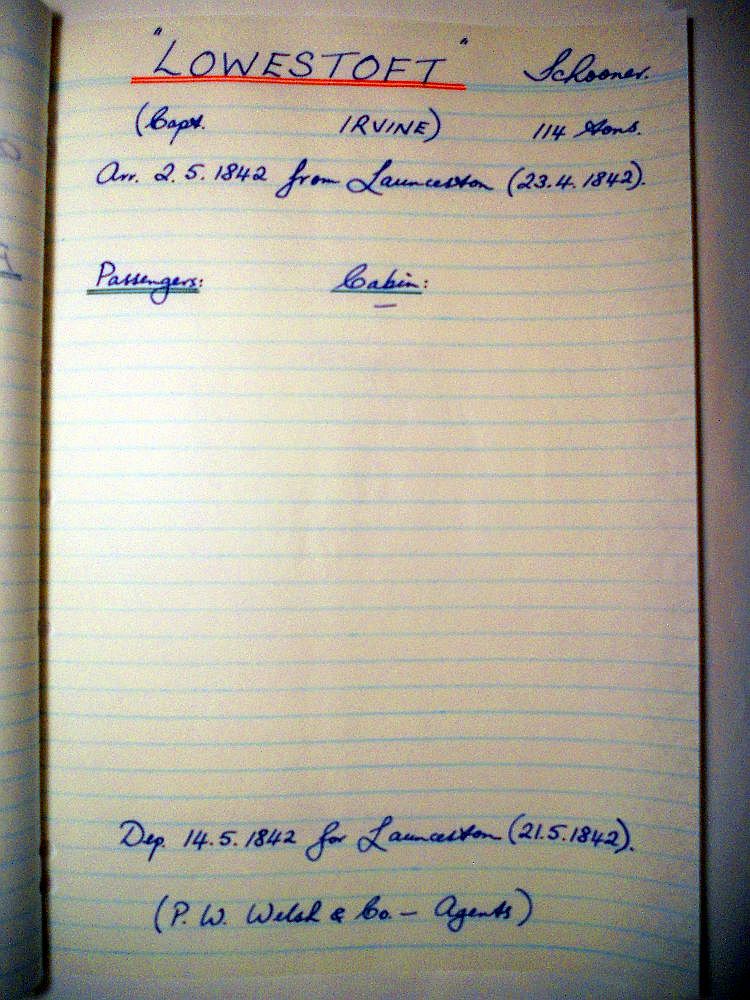 "LOWESTOFT" Schooner.
(Capt. IRVINE) 114 tons.
Arr. 2.5.1842 from Launceston (23.4.1842).
Passengers: Cabin:
—
Dep. 14.5.1842 for Launceston (21.5.1842).
(P. W. Welsh & Co. — Agents)